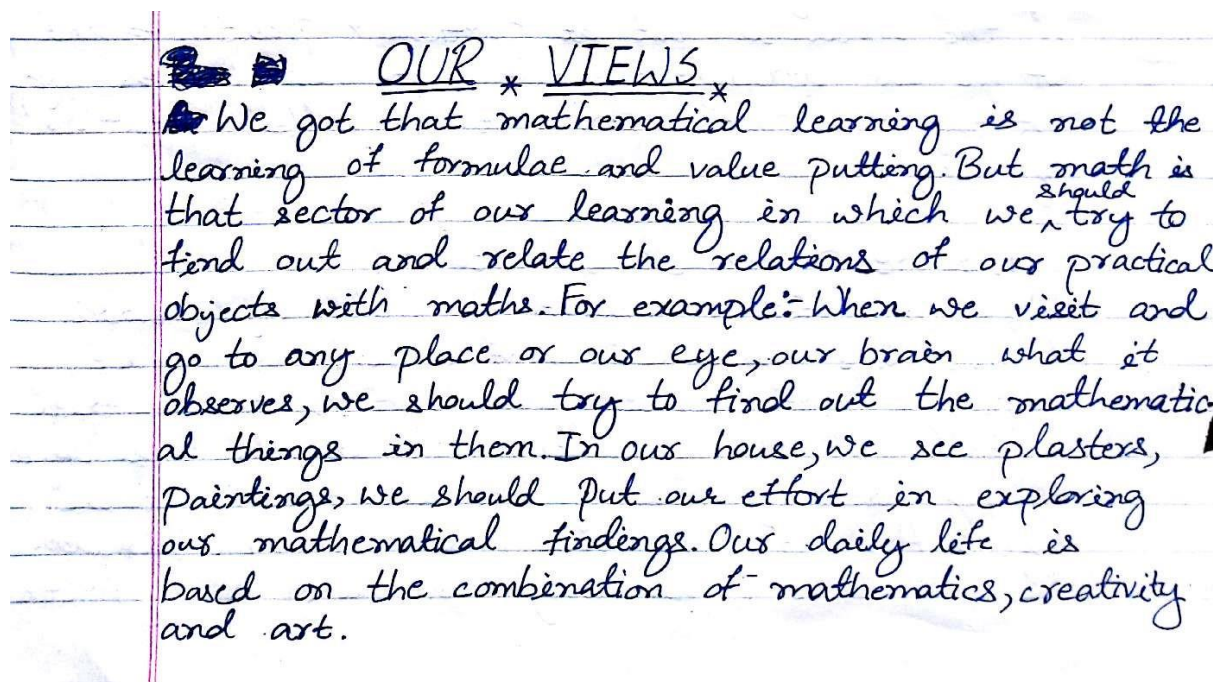 OUR * VIEWS *
We got that mathematical learning is not the
learning of formulae and value putting. But math is
that sector of our learning in which we should try to
find out and relate the relations of our practical
objects with maths. For example:- When we visit and
go to any place or our eye, our brain what it
observes, we should try to find out the mathematic-
al things in them. In our house, we see plasters,
paintings, we should put our effort in exploring
our mathematical findings. Our daily life is
based on the combination of mathematics, creativity
and art.